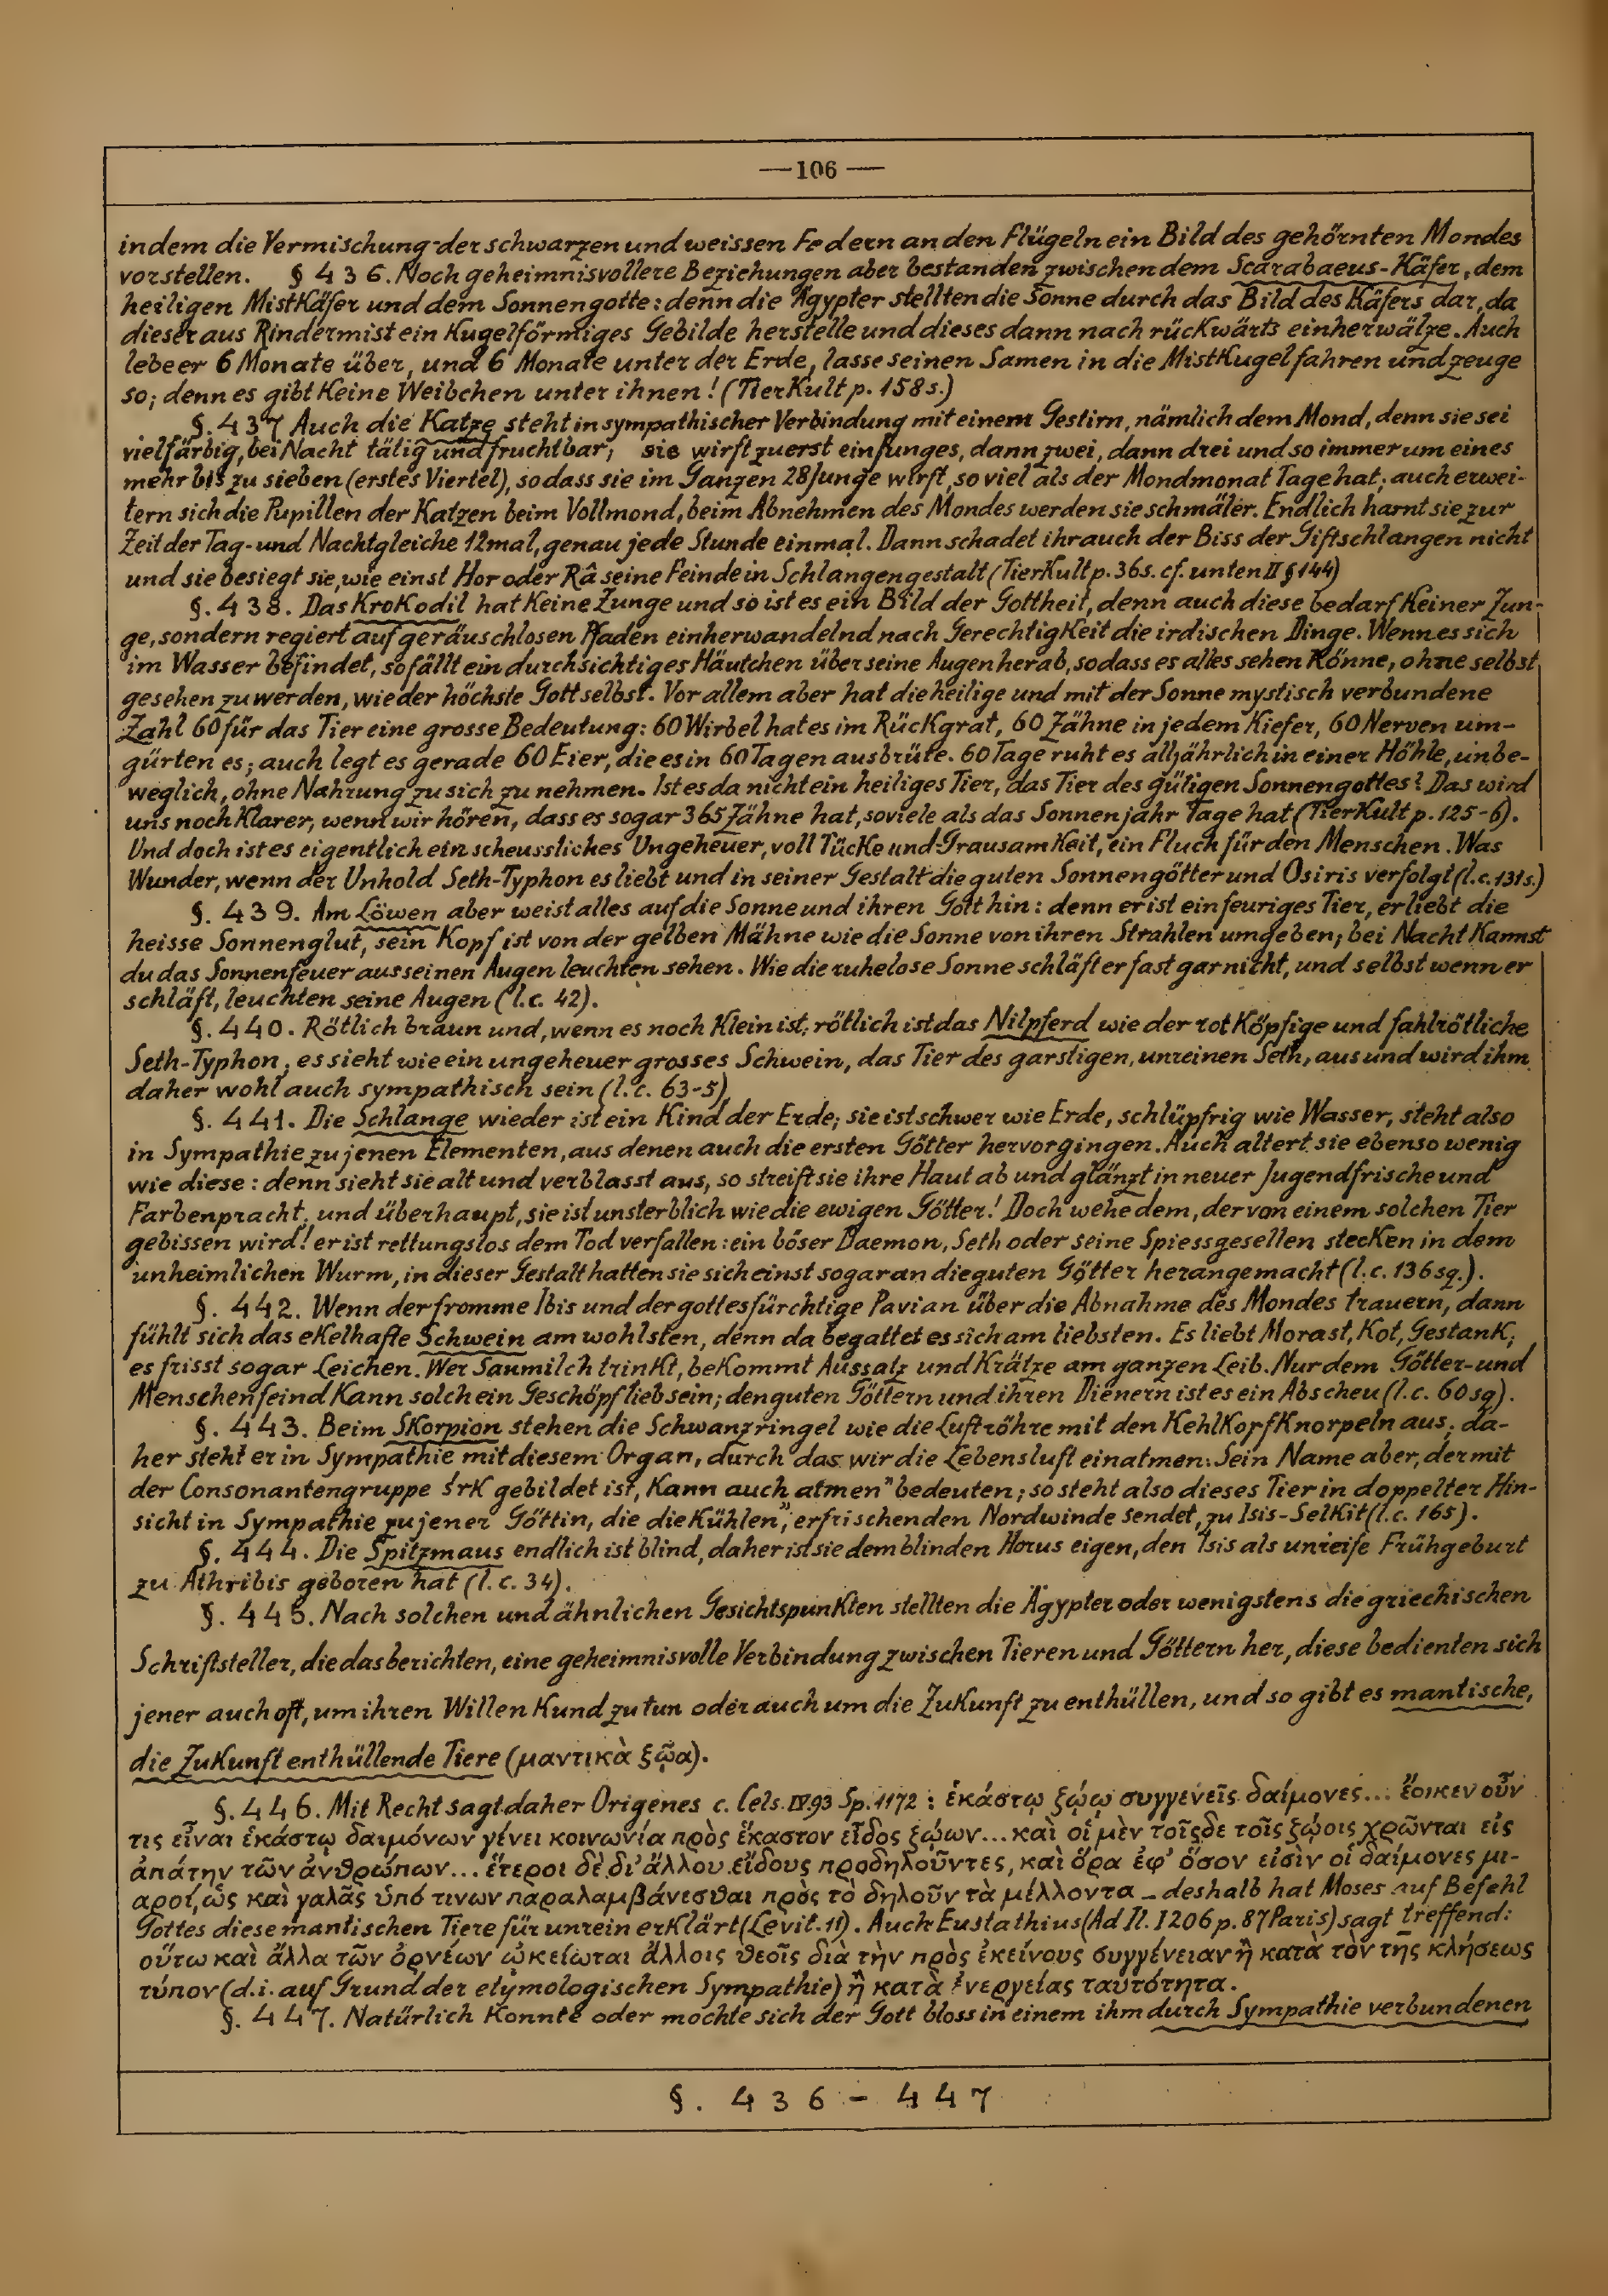 —106—
indem die Vermischung der schwarzen und weissen Federn an den Flügeln ein Bild des gehörnten Mondes
vorstellen. § 436. Noch geheimnisvollere Beziehungen aber bestanden zwischen dem Scarabaeus-Käfer, dem
heiligen Mistkäfer und dem Sonnengotte: denn die Ägypter stellten die Sonne durch das Bild des Käfers dar, da
dieser aus Rindermist ein kugelförmiges Gebilde herstelle und dieses dann nach rückwärts einherwälze. Auch
lebe er 6 Monate über, und 6 Monate unter der Erde, lasse seinen Samen in die Mistkugel fahren und zeuge
so; denn es gibt keine Weibchen unter ihnen! (Tierkult p. 158 s.)
§. 437 Auch die Katze steht in sympathischer Verbindung mit einem Gestirn, nämlich dem Mond, denn sie sei
vielfärbig, bei Nacht tätig und fruchtbar; sie wirft zuerst ein Junges, dann zwei, dann drei und so immer um eines
mehr bis zu sieben (erstes Viertel), sodass sie im Ganzen 28 Junge wirft, so viel als der Mondmonat Tage hat; auch erwei-
tern sich die Pupillen der Katzen beim Vollmond, beim Abnehmen des Mondes werden sie schmäler. Endlich harnt sie zur
Zeit der Tag- und Nachtgleiche 12mal, genau jede Stunde einmal. Dann schadet ihr auch der Biss der Giftschlangen nicht
und sie besiegt sie, wie einst Hor oder Râ seine Feinde in Schlangengestalt (Tierkult p. 36 s. cf. unten II § 144)
§. 438. Das Krokodil hat keine Zunge und so ist es ein Bild der Gottheit, denn auch diese bedarf keiner Zun-
ge, sondern regiert auf geräuschlosen Pfaden einherwandelnd nach Gerechtigkeit die irdischen Dinge. Wenn es sich
im Wasser befindet, so fällt ein durchsichtiges Häutchen über seine Augen herab, sodass es alles sehen könne, ohne selbst
gesehen zu werden, wie der höchste Gott selbst. Vor allem aber hat die heilige und mit der Sonne mystisch verbundene
Zahl 60 für das Tier eine grosse Bedeutung: 60 Wirbel hat es im Rückgrat, 60 Zähne in jedem Kiefer, 60 Nerven um-
gürten es; auch legt es gerade 60 Eier, die es in 60 Tagen ausbrüte. 60 Tage ruht es alljährlich in einer Höhle, unbe-
weglich, ohne Nahrung zu sich zu nehmen. Ist es da nicht ein heiliges Tier, das Tier des gütigen Sonnengottes? Das wird
uns noch klarer, wenn wir hören, dass es sogar 365 Zähne hat, soviele als das Sonnenjahr Tage hat (Tierkult p. 125-6).
Und doch ist es eigentlich ein scheussliches Ungeheuer, voll Tücke und Grausamkeit, ein Fluch für den Menschen. Was
Wunder, wenn der Unhold Seth-Typhon es liebt und in seiner Gestalt die guten Sonnengötter und Osiris verfolgt (l.c. 131s.)
§. 439. Am Löwen aber weist alles auf die Sonne und ihren Gott hin: denn er ist ein feuriges Tier, er liebt die
heisse Sonnenglut, sein Kopf ist von der gelben Mähne wie die Sonne von ihren Strahlen umgeben; bei Nacht kannst
du das Sonnenfeuer aus seinen Augen leuchten sehen. Wie die ruhelose Sonne schläft er fast gar nicht, und selbst wenn er
schläft, leuchten seine Augen (l.c. 42).
§. 440. Rötlich braun und, wenn es noch klein ist, rötlich ist das Nilpferd wie der rotköpfige und fahlrötliche
Seth-Typhon; es sieht wie ein ungeheuer grosses Schwein, das Tier des garstigen, unreinen Seth, aus und wird ihm
daher wohl auch sympathisch sein (l.c. 63-5)
§. 441. Die Schlange wieder ist ein Kind der Erde; sie ist schwer wie Erde, schlüpfrig wie Wasser, steht also
in Sympathie zu jenen Elementen, aus denen auch die ersten Götter hervorgingen. Auch altert sie ebenso wenig
wie diese: denn sieht sie alt und verblasst aus, so streift sie ihre Haut ab und glänzt in neuer Jugendfrische und
Farbenpracht, und überhaupt, sie ist unsterblich wie die ewigen Götter! Doch wehe dem, der von einem solchen Tier
gebissen wird! er ist rettungslos dem Tod verfallen: ein böser Daemon, Seth oder seine Spiessgesellen stecken in dem
unheimlichen Wurm, in dieser Gestalt hatten sie sich einst sogar an die guten Götter herangemacht (l.c. 136 sq.).
§. 442. Wenn der fromme Ibis und der gottesfürchtige Pavian über die Abnahme des Mondes trauern, dann
fühlt sich das ekelhafte Schwein am wohlsten, denn da begattet es sich am liebsten. Es liebt Morast, Kot, Gestank;
es frisst sogar Leichen. Wer Saumilch trinkt, bekommt Aussatz und Krätze am ganzen Leib. Nur dem Götter- und
Menschenfeind kann solch ein Geschöpf lieb sein; den guten Göttern und ihren Dienern ist es ein Abscheu (l.c. 60 sq).
§. 443. Beim Skorpion stehen die Schwanzringel wie die Luftröhre mit den Kehlkopfknorpeln aus; da-
her steht er in Sympathie mit diesem Organ, durch das wir die Lebensluft einatmen. Sein Name aber, der mit
der Consonantengruppe śrk gebildet ist, kann auch „atmen" bedeuten; so steht also dieses Tier in doppelter Hin-
sicht in Sympathie zu jener Göttin, die die „kühlen", erfrischenden Nordwinde sendet, zu Isis-Selkit (l.c. 165).
§. 444. Die Spitzmaus endlich ist blind, daher ist sie dem blinden Horus eigen, den Isis als unreife Frühgeburt
zu Athribis geboren hat (l.c. 34).
§. 445. Nach solchen und ähnlichen Gesichtspunkten stellten die Ägypter oder wenigstens die griechischen
Schriftsteller, die das berichten, eine geheimnisvolle Verbindung zwischen Tieren und Göttern her, diese bedienten sich
jener auch oft, um ihren Willen kund zu tun oder auch um die Zukunft zu enthüllen, und so gibt es mantische,
die Zukunft enthüllende Tiere (μαντικὰ ξῷα).
§. 446. Mit Recht sagt daher Origenes c. Cels. IV. 93 Sp. 1172: ἑκάστῳ ξῴῳ συγγενεῖς δαίμονες... ἔοικεν οὖν
τις εἶναι ἑκάστῳ δαιμόνων γένει κοινωνία πρὸς ἕκαστον εἶδος ξῴων... καὶ οἱ μὲν τοῖςδε τοῖς ξῴοις χρῶνται εἰς
ἀπάτην τῶν ἀνθρώπων... ἕτεροι δὲ δι' ἄλλου εἴδους προδηλοῦντες, καὶ ὅρα ἐφ' ὅσον εἰσὶν οἱ δαίμονες μι-
αροί, ὡς καὶ γαλᾶς ὑπό τινων παραλαμβάνεσθαι πρὸς τὸ δηλοῦν τὰ μέλλοντα – deshalb hat Moses auf Befehl
Gottes diese mantischen Tiere für unrein erklärt (Levit. 11). Auch Eustathius (Ad Il. I 206 p. 87 Paris) sagt treffend:
οὕτω καὶ ἄλλα τῶν ὀρνέων ᾠκείωται ἄλλοις θεοῖς διὰ τὴν πρὸς ἐκείνους συγγένειαν ἢ κατὰ τὸν τῆς κλήσεως
τύπον (d.i. auf Grund der etymologischen Sympathie) ἢ κατὰ ἐνεργείας ταὐτότητα.
§. 447. Natürlich konnte oder mochte sich der Gott bloss in einem ihm durch Sympathie verbundenen
§. 436 - 447